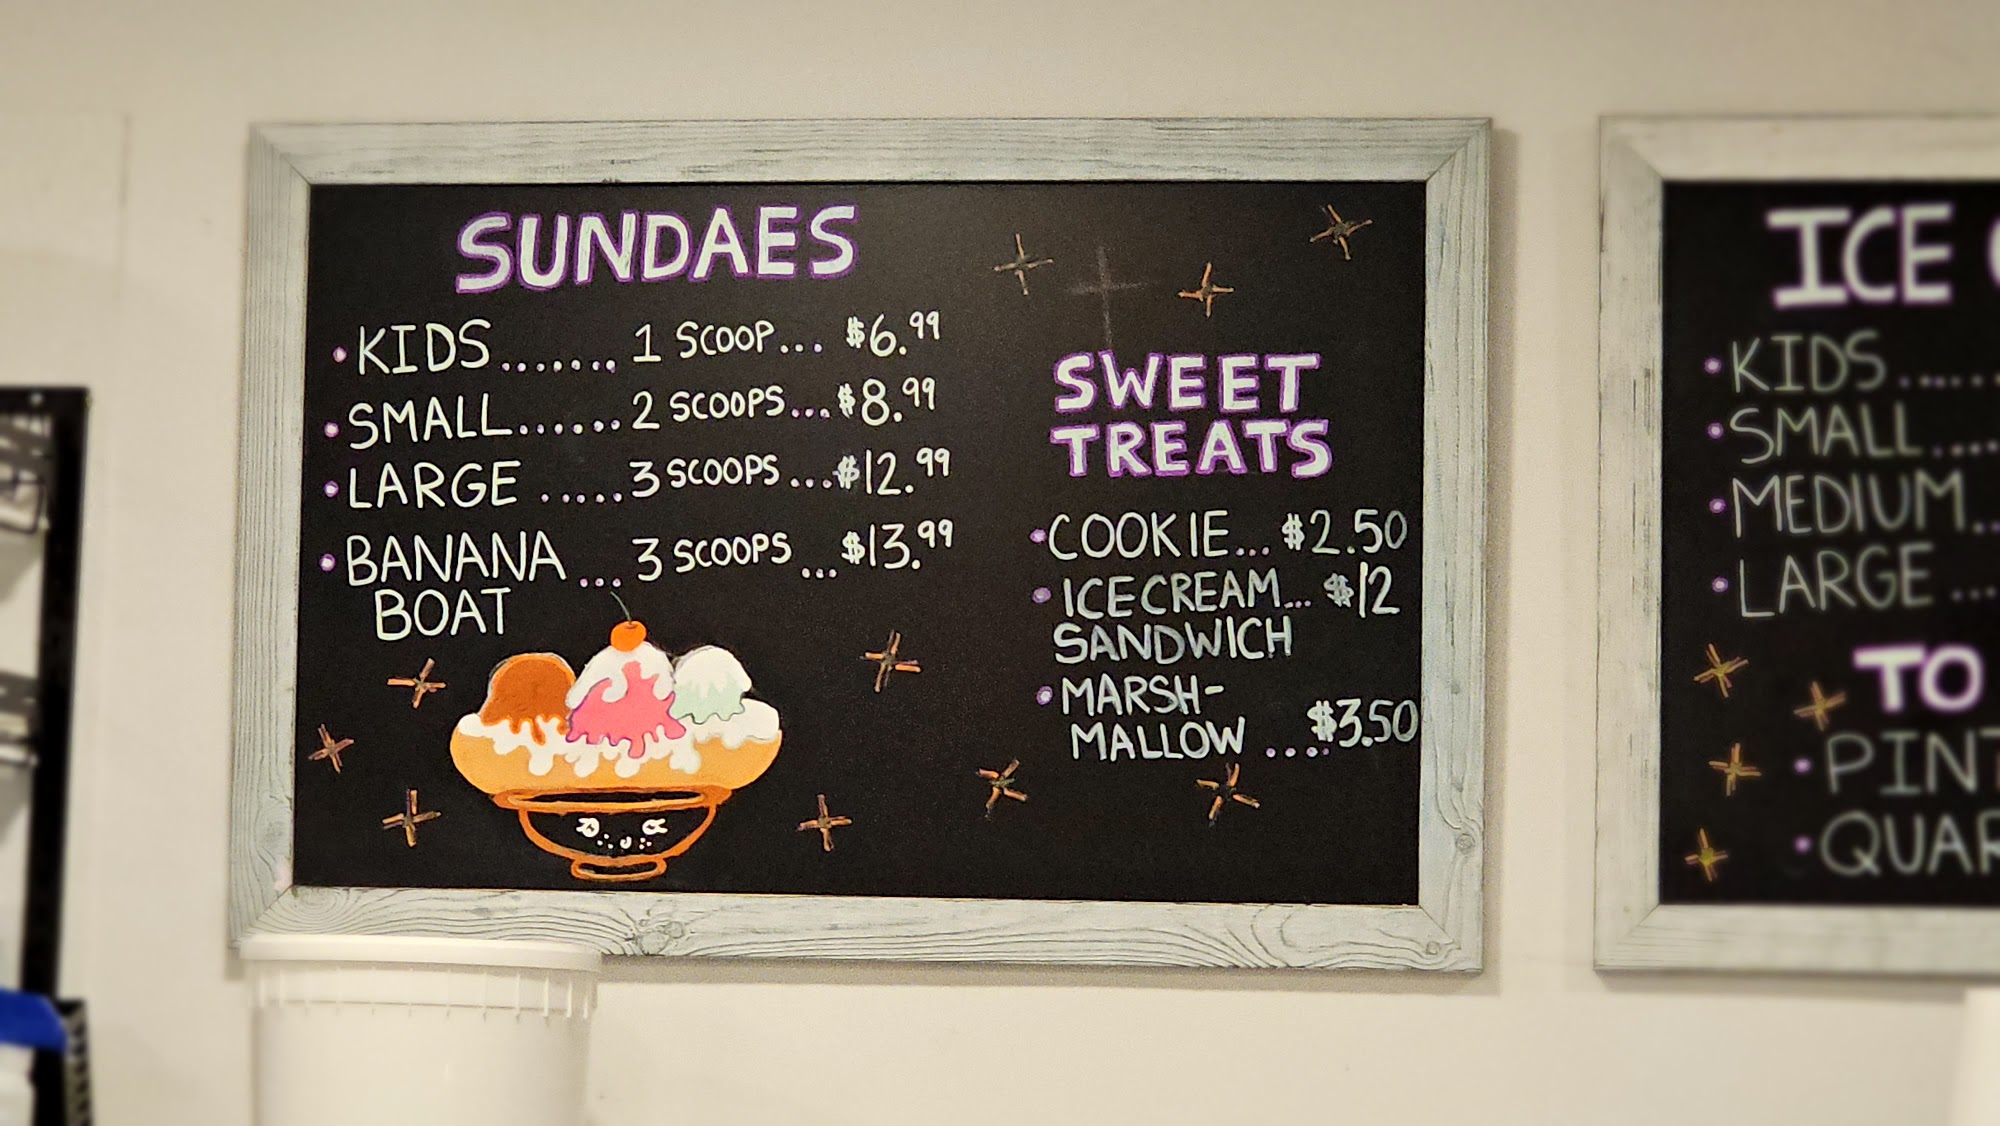 SUNDAES
• KIDS....... 1 SCOOP... $6.99
• SMALL...... 2 SCOOPS... $8.99
• LARGE ..... 3 SCOOPS ... $12.99
• BANANA ... 3 SCOOPS ... $13.99
BOAT
SWEET
TREATS
• COOKIE... $2.50
• ICE CREAM... $12
SANDWICH
• MARSH-
MALLOW .... $3.50
ICE
• KIDS .....
• SMALL ....
• MEDIUM...
• LARGE ...
TO